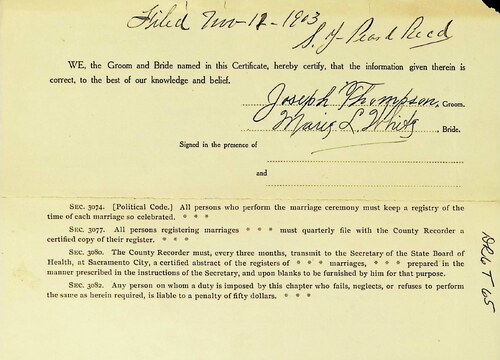 Filed Nov-12-1903
S. J. Peard Recd
WE, the Groom and Bride named in this Certificate, hereby certify, that the information given therein is
correct, to the best of our knowledge and belief.
Joseph Thompson, Groom.
Marie L. White, Bride.
Signed in the presence of
and
SEC. 3074. [Political Code.] All persons who perform the marriage ceremony must keep a registry of the
time of each marriage so celebrated. * * *
SEC. 3077. All persons registering marriages * * * must quarterly file with the County Recorder
a certified copy of their register. * * *
SEC. 3080. The County Recorder must, every three months, transmit to the Secretary of the State Board of
Health, at Sacramento City, a certified abstract of the registers of * * * marriages, * * * prepared in the
manner prescribed in the instructions of the Secretary, and upon blanks to be furnished by him for that purpose.
SEC. 3082. Any person on whom a duty is imposed by this chapter who fails, neglects, or refuses to perform
the same as herein required, is liable to a penalty of fifty dollars. * * *